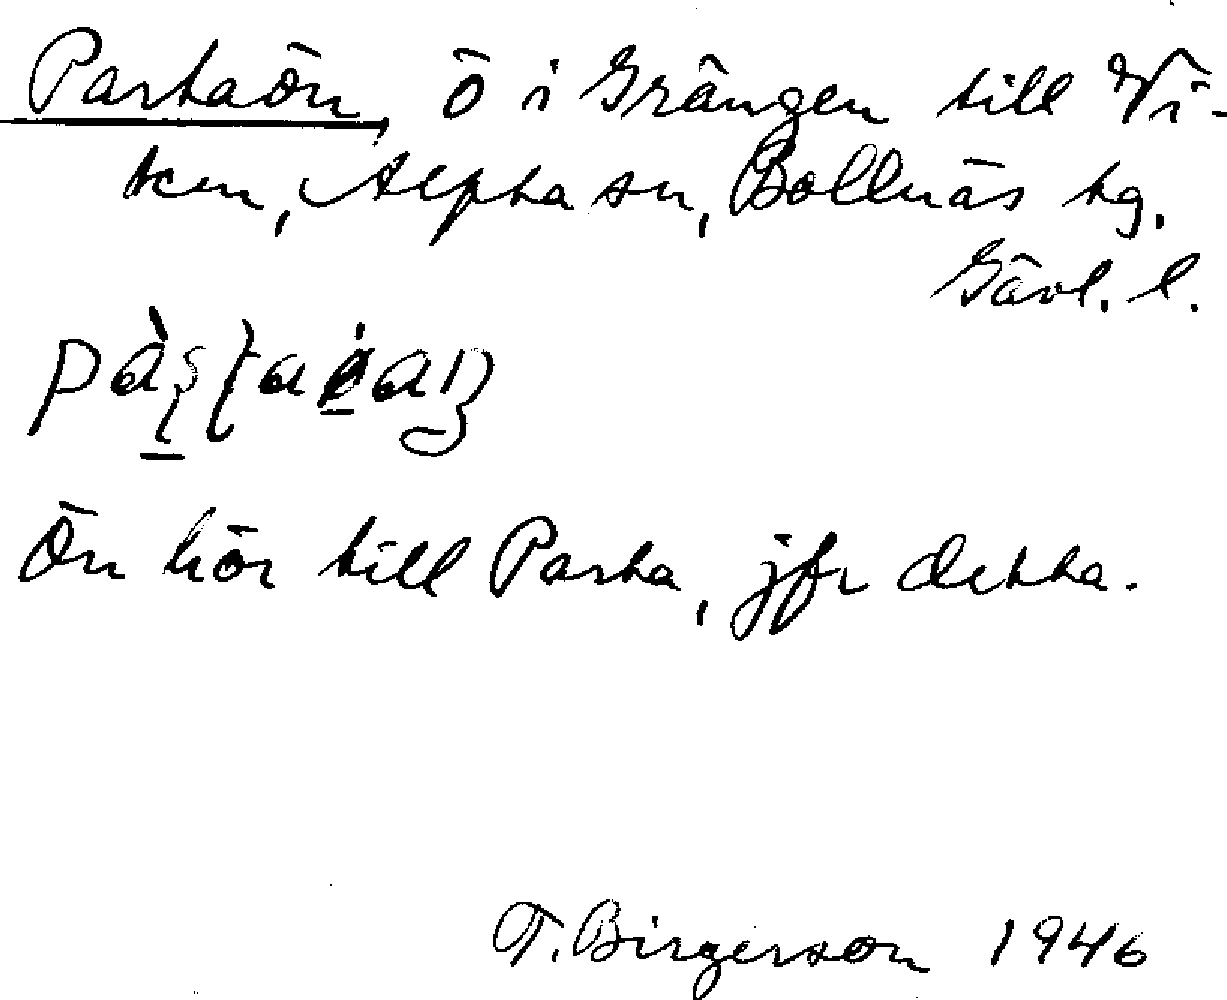 Partaön, ö i Grängen till Vi-
ken, Alfta sn, Bollnäs tg.
Gävl. l.
Ön hör till Parta, jfr detta.
T. Birgerson 1946